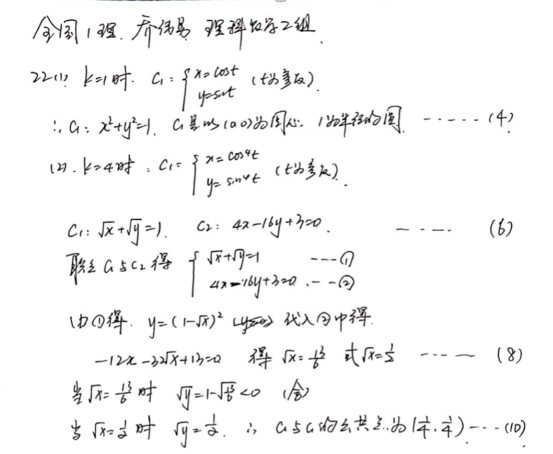 全国1理. 乔伟易 理科数学2组
22(1) k=1时. C₁: { x=cost y=sint (t为参数).
∴ C₁: x²+y²=1. C₁是以(0,0)为圆心. 1为半径的圆. ------ (4)
(2). k=4时. C₁= { x=cos⁴t y=sin⁴t (t为参数).
C₁: √x+√y=1. C₂: 4x-16y+3=0. ---- (6)
联立C₁与C₂得 { √x+√y=1 ---① 4x-16y+3=0 ---②
由①得. y=(1-√x)² 代入②中得.
-12x-32√x+13=0 得 √x=13/6 或√x=1/2 ----- (8)
当√x=13/6时 √y=1-√13/6<0 (舍)
当√x=1/2时 √y=1/2. ∴ C₁与C₁的公共点为(1/4, 1/4) --- (10)